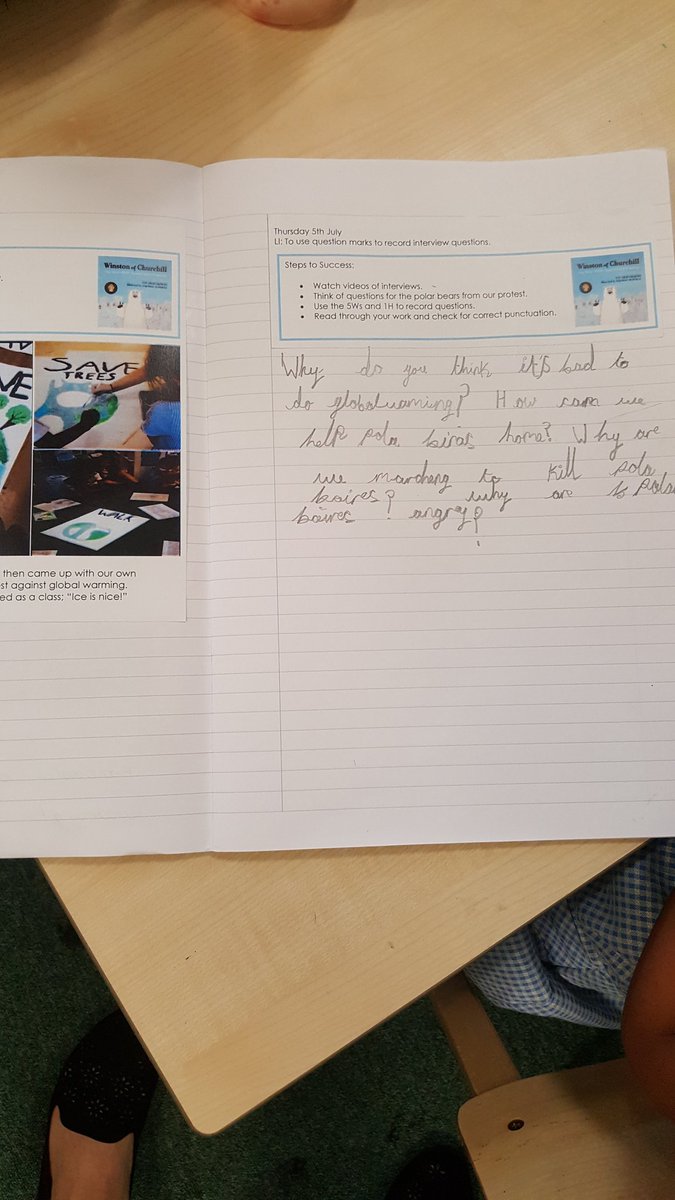 Winston of Churchill
SAVE
TREES
WALK
then came up with our own
st against global warming.
ed as a class; "Ice is nice!"
Thursday 5th July
LI: To use question marks to record interview questions.
Steps to Success:
Winston of Churchill
• Watch videos of interviews.
• Think of questions for the polar bears from our protest.
• Use the 5Ws and 1H to record questions.
• Read through your work and check for correct punctuation.
Why do you think it's bad to
do globaluaming? How can we
help pola biras home? Why are
we marcheng to kill pola
baires? why are pola
baires angry?